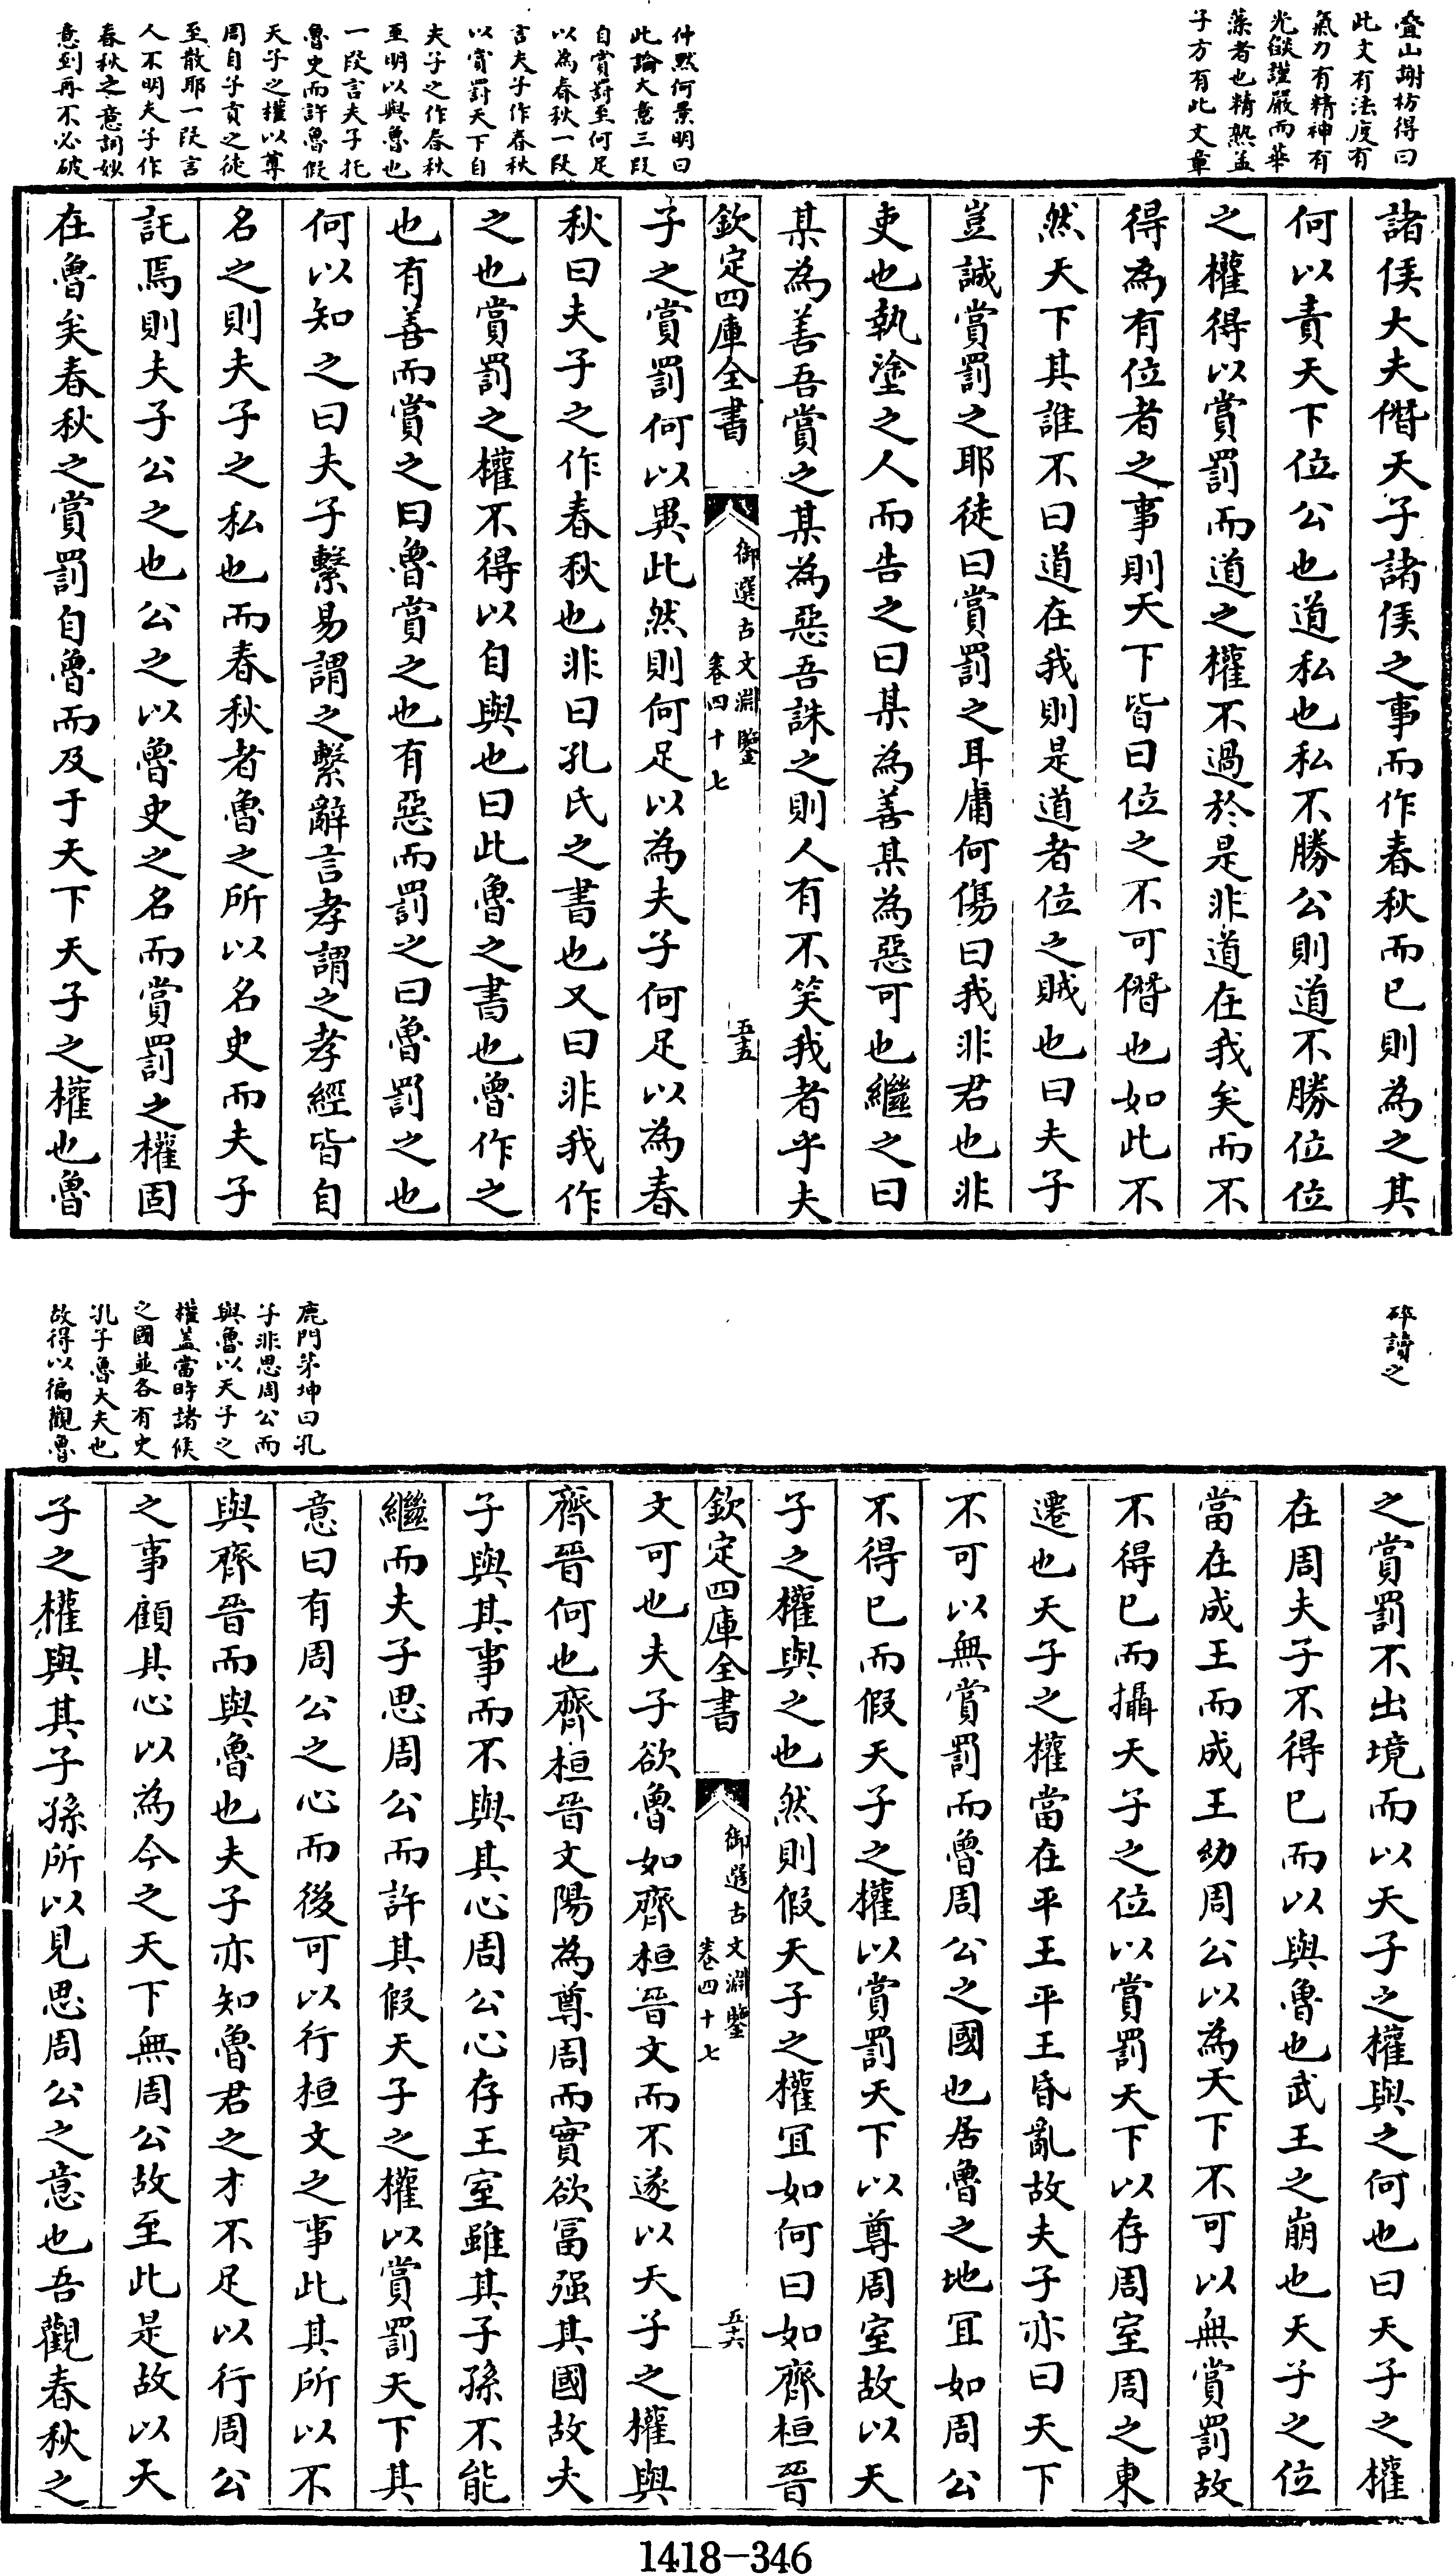 疊山謝枋得曰
此文有法度有
氣力有精神有
光燄謹嚴而華
藻者也精熟孟
子方有此文章
仲黙何景明曰
此論大意三段
自賞罰至何足
以為春秋一段
言夫子作春秋
以賞罰天下自
夫子之作春秋
至明以與魯也
一段言夫子托
魯史而許魯假
天子之權以尊
周自子貢之徒
至散耶一段言
人不明夫子作
春秋之意詞妙
意到再不必破
諸侯大夫僭天子諸侯之事而作春秋而已則為之其
何以責天下位公也道私也私不勝公則道不勝位位
之權得以賞罰而道之權不過於是非道在我矣而不
得為有位者之事則天下皆曰位之不可僭也如此不
然天下其誰不曰道在我則是道者位之賊也曰夫子
豈誠賞罰之耶徒曰賞罰之耳庸何傷曰我非君也非
吏也執塗之人而告之曰某為善某為惡可也繼之曰
某為善吾賞之某為惡吾誅之則人有不笑我者乎夫
欽定四庫全書
御選古文淵鑒
卷四十七
五五
子之賞罰何以異此然則何足以為夫子何足以為春
秋曰夫子之作春秋也非曰孔氏之書也又曰非我作
之也賞罰之權不得以自與也曰此魯之書也魯作之
也有善而賞之曰魯賞之也有惡而罰之曰魯罰之也
何以知之曰夫子繫易謂之繫辭言孝謂之孝經皆自
名之則夫子之私也而春秋者魯之所以名史而夫子
託焉則夫子公之也公之以魯史之名而賞罰之權固
在魯矣春秋之賞罰自魯而及于天下天子之權也魯
碎讀之
鹿門茅坤曰孔
子非思周公而
與魯以天子之
權蓋當時諸侯
之國並各有史
孔子魯大夫也
故得以徧觀魯
之賞罰不出境而以天子之權與之何也曰天子之權
在周夫子不得已而以與魯也武王之崩也天子之位
當在成王而成王幼周公以為天下不可以無賞罰故
不得已而攝天子之位以賞罰天下以存周室周之東
遷也天子之權當在平王平王昏亂故夫子亦曰天下
不可以無賞罰而魯周公之國也居魯之地宜如周公
不得已而假天子之權以賞罰天下以尊周室故以天
子之權與之也然則假天子之權宜如何曰如齊桓晉
欽定四庫全書
御選古文淵鑒
卷四十七
五六
文可也夫子欲魯如齊桓晉文而不遂以天子之權與
齊晉何也齊桓晉文陽為尊周而實欲富强其國故夫
子與其事而不與其心周公心存王室雖其子孫不能
繼而夫子思周公而許其假天子之權以賞罰天下其
意曰有周公之心而後可以行桓文之事此其所以不
與齊晉而與魯也夫子亦知魯君之才不足以行周公
之事顧其心以為今之天下無周公故至此是故以天
子之權與其子孫所以見思周公之意也吾觀春秋之
1418-346